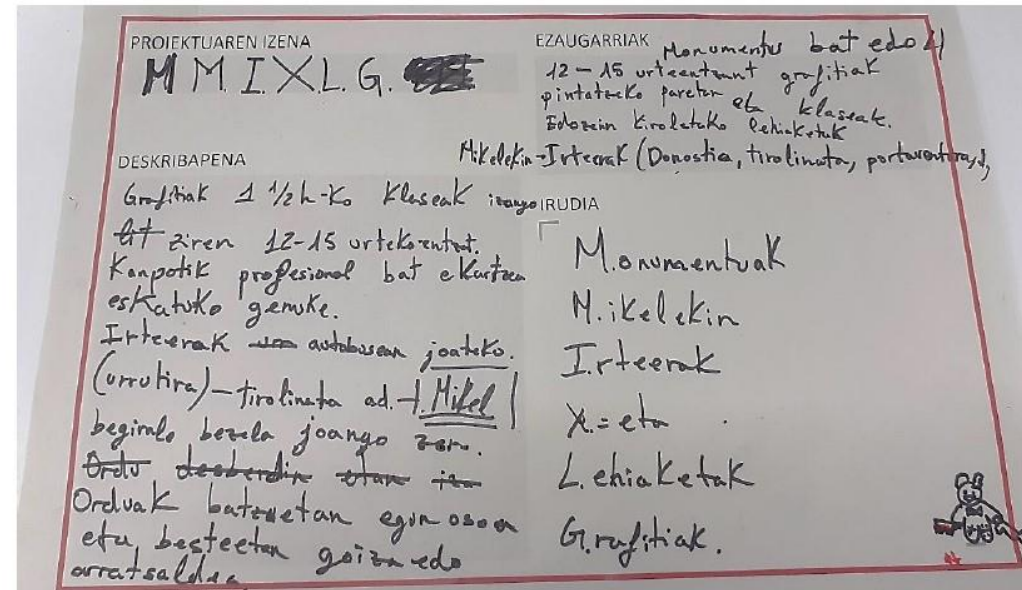 PROIEKTUAREN IZENA
M M.I.X.L.G.
EZAUGARRIAK
Monumentus bat edo 4
12-15 urteentzunt grafitiak
pintatzeko pareten eta klaseak.
Edozein kiroletako lehiaketak
Mikelekin-Irteerak (Donostia, tirolinata, portaventura,
DESKRIBAPENA
Grafitiak 1 1/2 h-ko klaseak izango
ziren 12-15 urtekoentzat.
Kanpotik profesional bat ekartzea
eskatuko genuke.
Irteerak autobusean joateko.
(urrutira)-tirolinata ad.-Mikel
begirale bezela joango zen.
Ordu desberdin etan iza
Orduak batzuetan egun osoa
eta besteetan goiza edo
arratsaldea
IRUDIA
M.onumentuak
M.ikelekin
I.rteerak
X.=eta
L.ehiaketak
G.rafitiak.